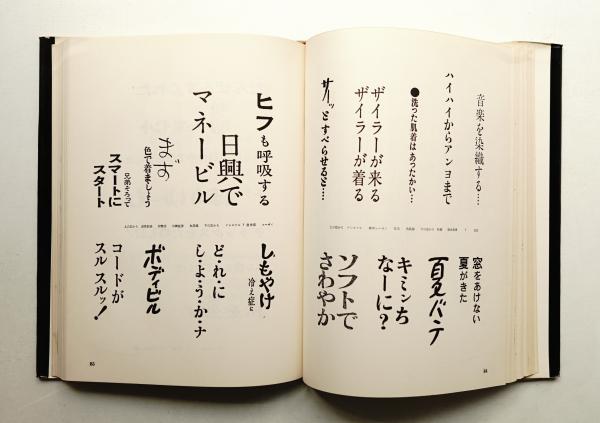 音楽を染織する……
ハイハイからアンヨまで
●洗った肌着はあったかい…
ザイラーが来る
ザイラーが着る
サーッとすべらせると…
窓をあけない
夏がきた
夏バテ
キミンち
なーに?
ソフトで
さわやか
ヒフも呼吸する
日興で
マネービル
まず
色で着ましょう
兄弟そろって
スマートに
スタート
しもやけ
冷え症に
ど・れ・に
し・よ・う・か・ナ
ボディビル
コードが
スルスルッ!
85
84